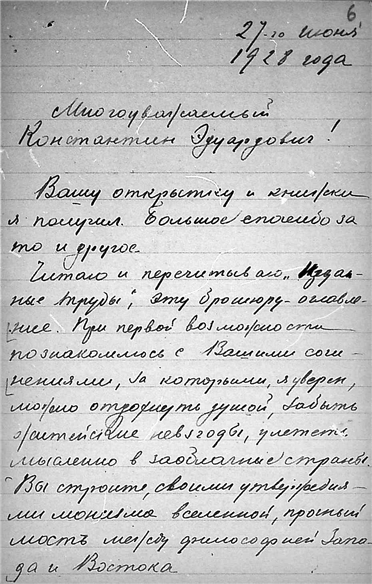 6
27-го июня
1928 года
Многоуважаемый
Константин Эдуардович!
Вашу открытку и книжки
я получил. Большое спасибо за
то и другое.
Читаю и перечитываю „Издан-
ные труды", эту брошюру-оглавле-
ние. При первой возможности
познакомлюсь с Вашими сочи-
нениями, за которыми, я уверен,
можно отдохнуть душой, забыть
житейские невзгоды, улететь
мысленно в заоблачные страны.
Вы строите, своими утверждени-
ями монизма вселенной, простый
мостъ между философией Запа-
да и Востока